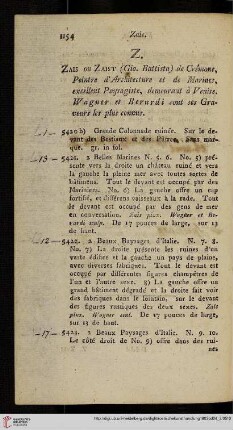 1154 Zais.
Z.
ZAIS OU ZAIST (Gio. Battista) de Crémone,
Peintre d'Architecture et de Marines,
excellent Paysagiste, demeurant à Venise.
Wagner et Berardi sont ses Gra-
veurs les plus connus.
5420 b) Grande Colonnade ruinée. Sur le de-
vant des Bestiaux et des Pâtres. Sans mar-
que. gr. in fol.
5421. 2 Belles Marines N. 5. 6. No. 5) pré-
sente vers la droite un château ruiné et vers
la gauche la pleine mer avec toutes sortes de
bâtimens. Tout le devant est occupé par des
Mariniers. No. 6) La gauche offre un cap
fortifié, et différens vaisseaux à la rade. Tout
le devant est occupé par des gens de mer
en conversation. Zais pinx. Wagner et Be-
rardi sculp. De 17 pouces de large, sur 13
de haut.
12 — 5422. 2 Beaux Paysages d'Italie. N. 7. 8.
No. 7) La droite présente les ruines d'un
vaste édifice et la gauche un pays de plaine,
avec diverses fabriques. Tout le devant est
occupé par différentes figures champêtres de
l'un et l'autre sexe. 8) La gauche offre un
grand bâtiment dégradé et la droite fait voir
des fabriques dans le lointain, sur le devant
des figures rustiques des deux sexes. Zais
pinx. Wagner exc. De 17 pouces de large,
sur 13 de haut.
17 — 5423. 2 Beaux Paysages d'Italie. N. 9. 10.
Le côté droit de No. 9) offre dans des rui-
nes